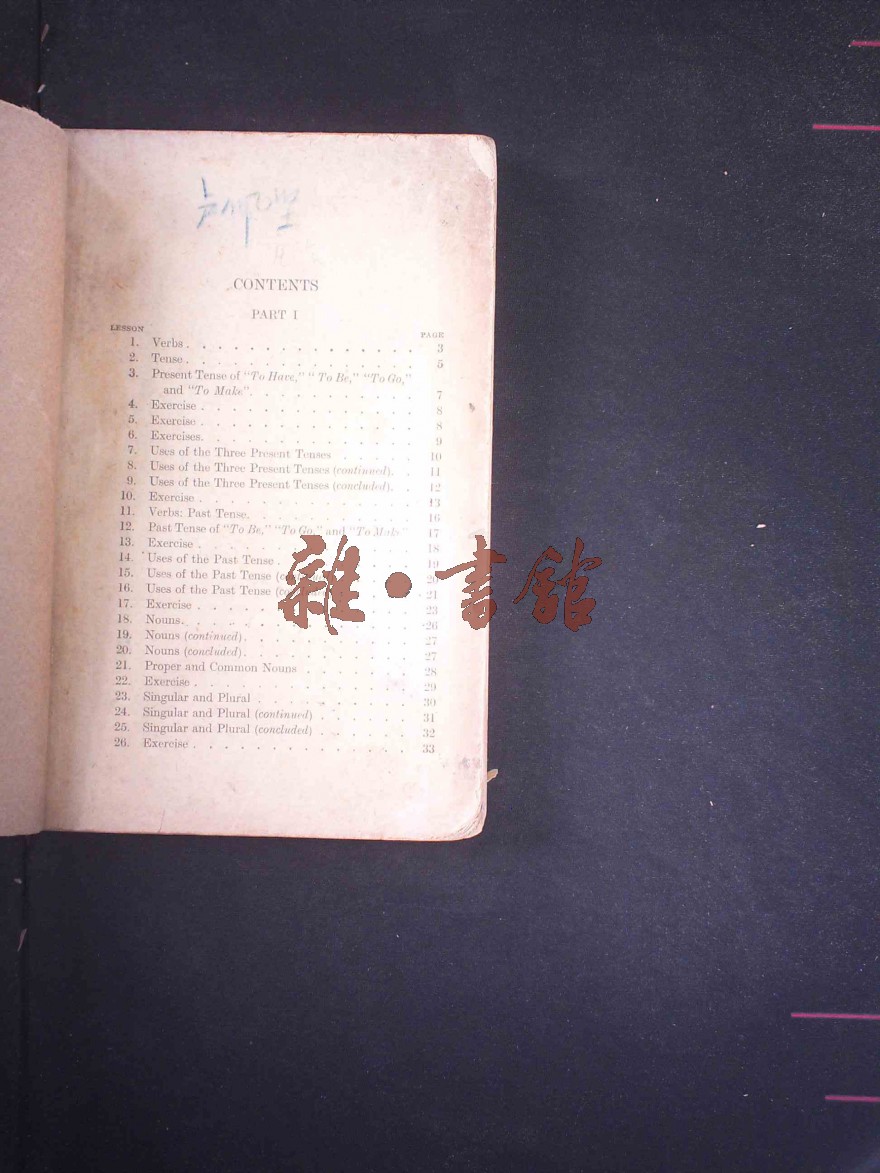 CONTENTS
PART I
LESSON PAGE
1. Verbs . . . . . . . . . . . . . . . 3
2. Tense . . . . . . . . . . . . . . . 5
3. Present Tense of "To Have," "To Be," "To Go,"
and "To Make" . . . . . . . . . . . 7
4. Exercise . . . . . . . . . . . . . . 8
5. Exercise . . . . . . . . . . . . . . 8
6. Exercises. . . . . . . . . . . . . . 9
7. Uses of the Three Present Tenses . . . . . 10
8. Uses of the Three Present Tenses (continued). . 11
9. Uses of the Three Present Tenses (concluded). . 12
10. Exercise . . . . . . . . . . . . . . 13
11. Verbs: Past Tense. . . . . . . . . . . 16
12. Past Tense of "To Be," "To Go," and "To Make" 17
13. Exercise . . . . . . . . . . . . . . 18
14. Uses of the Past Tense . . . . . . . . . 19
15. Uses of the Past Tense 20
16. Uses of the Past Tense 21
17. Exercise . . . . . . . . . . . . . . 23
18. Nouns. . . . . . . . . . . . . . . 26
19. Nouns (continued) . . . . . . . . . . . 27
20. Nouns (concluded). . . . . . . . . . . 27
21. Proper and Common Nouns . . . . . . . 28
22. Exercise . . . . . . . . . . . . . . 29
23. Singular and Plural . . . . . . . . . . 30
24. Singular and Plural (continued) . . . . . . 31
25. Singular and Plural (concluded) . . . . . . 32
26. Exercise . . . . . . . . . . . . . . 33
雜•書館